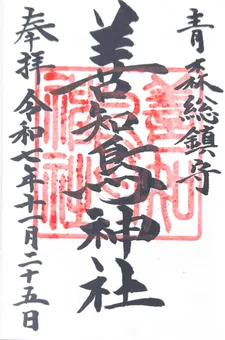 青森総鎮守
善知鳥神社
奉拝 令和七年十一月二十五日